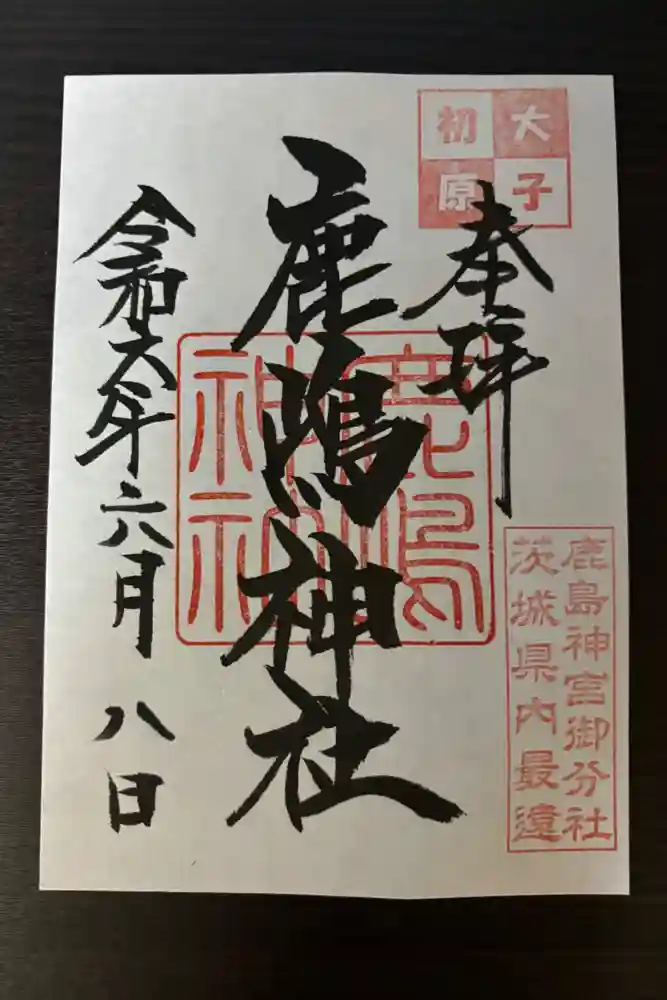 大子
初原
奉拝
鹿島神宮御分社
茨城県内最遠
鹿嶋神社
鹿嶋
神社
令和六年六月八日